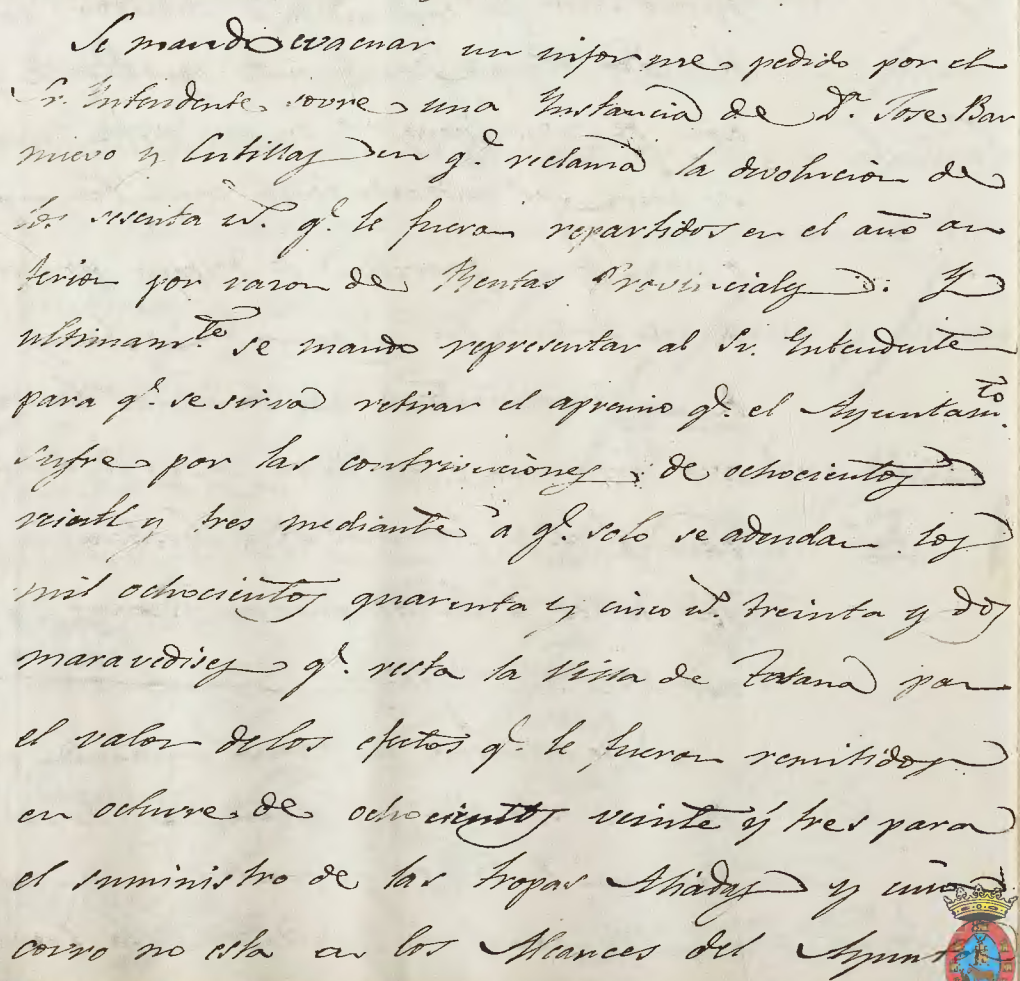 Se mando evacuar un informe pedido por el
Sr. Intendente sovre una Instancia de Dn. Jose Bar
nuevo y Cutillas en q.e reclama la devolucion de
los sesenta rs. q.e le fueron repartidos en el año an
terior por razon de Rentas Provinciales: Y
ultimam.te se mando representar al Sr. Intendente
para q.e se sirva retirar el apremio q.e el Ayuntam.to
sufre por las contriviciones de ochocientos
veinte y tres mediante à q.e solo se adeudan los
mil ochocientos quarenta y cinco rs. treinta y dos
maravedises q.e resta la Villa de Totana por
el valor delos efectos q.e le fueron remitidos
en octuvre de ochocientos veinte y tres para
el suministro de las tropas Aliadas y cuio
covro no esta en los Alcances del Ayunt